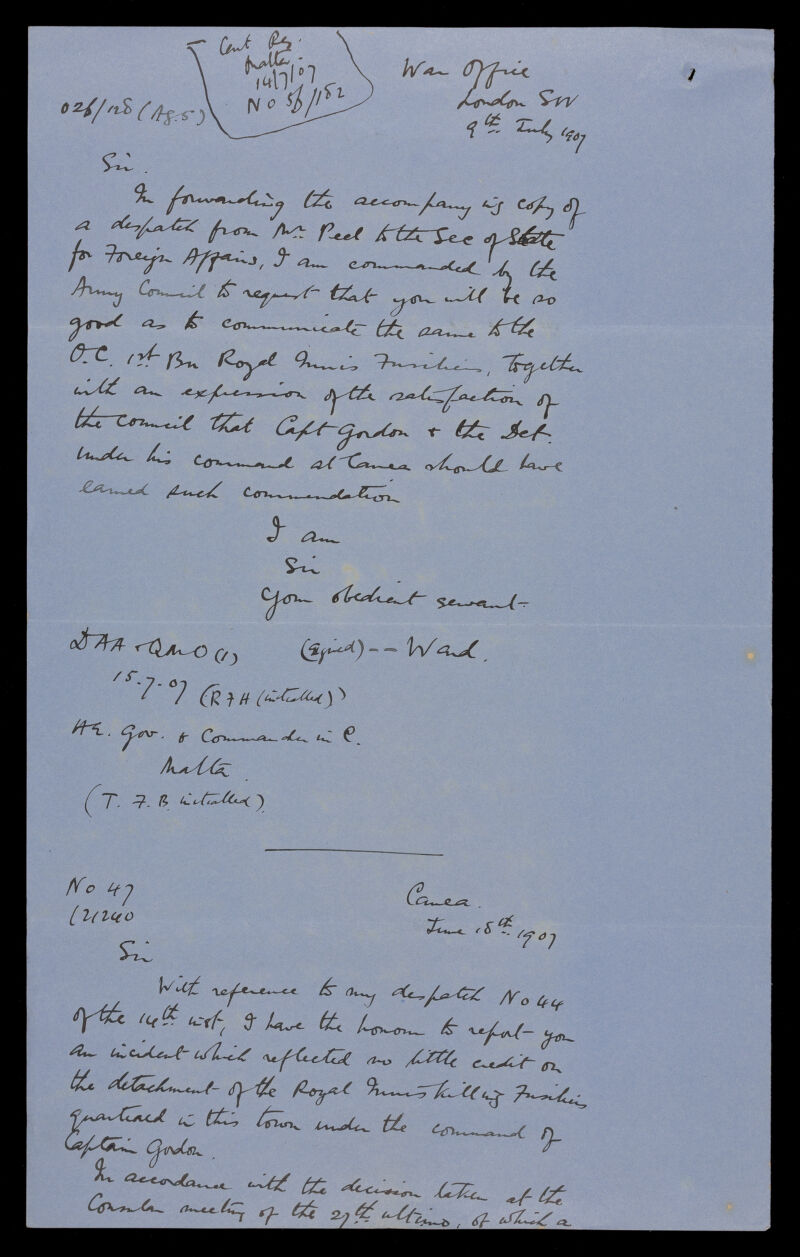 Cent Reg.
Malta
14/7/07
No 56/182
War Office
London SW
9th July 1907
026/128 (AG.5)
1
Sir.
In forwarding the accompanying copy of
a despatch from Mr. Peel to the Sec of State
for Foreign Affairs, I am commanded by the
Army Council to request that you will be so
good as to communicate the same to the
O.C. 1st Bn Royal Innis Fusiliers, together
with an expression of the satisfaction of
the council that Capt Gordon & the Det.
under his command at Canea should have
earned such commendation
I am
Sir
Your obedient servant-
DAA & QMG (1)
(signed) -- Ward.
15-7-07 (RFH (initialled))
HE. Gov. & Commander in C.
Malta.
(T. F. B. initialled)
No 47
(21240
Canea.
June 18th 1907
Sir
With reference to my despatch No 44
of the 14th inst, I have the honour to report you
an incident which reflected no little credit on
the detachment of the Royal Inniskilling Fusiliers
quartered in this town under the command of
Captain Gordon.
In accordance with the decision taken at the
Consular meeting of the 27th ultimo, of which a